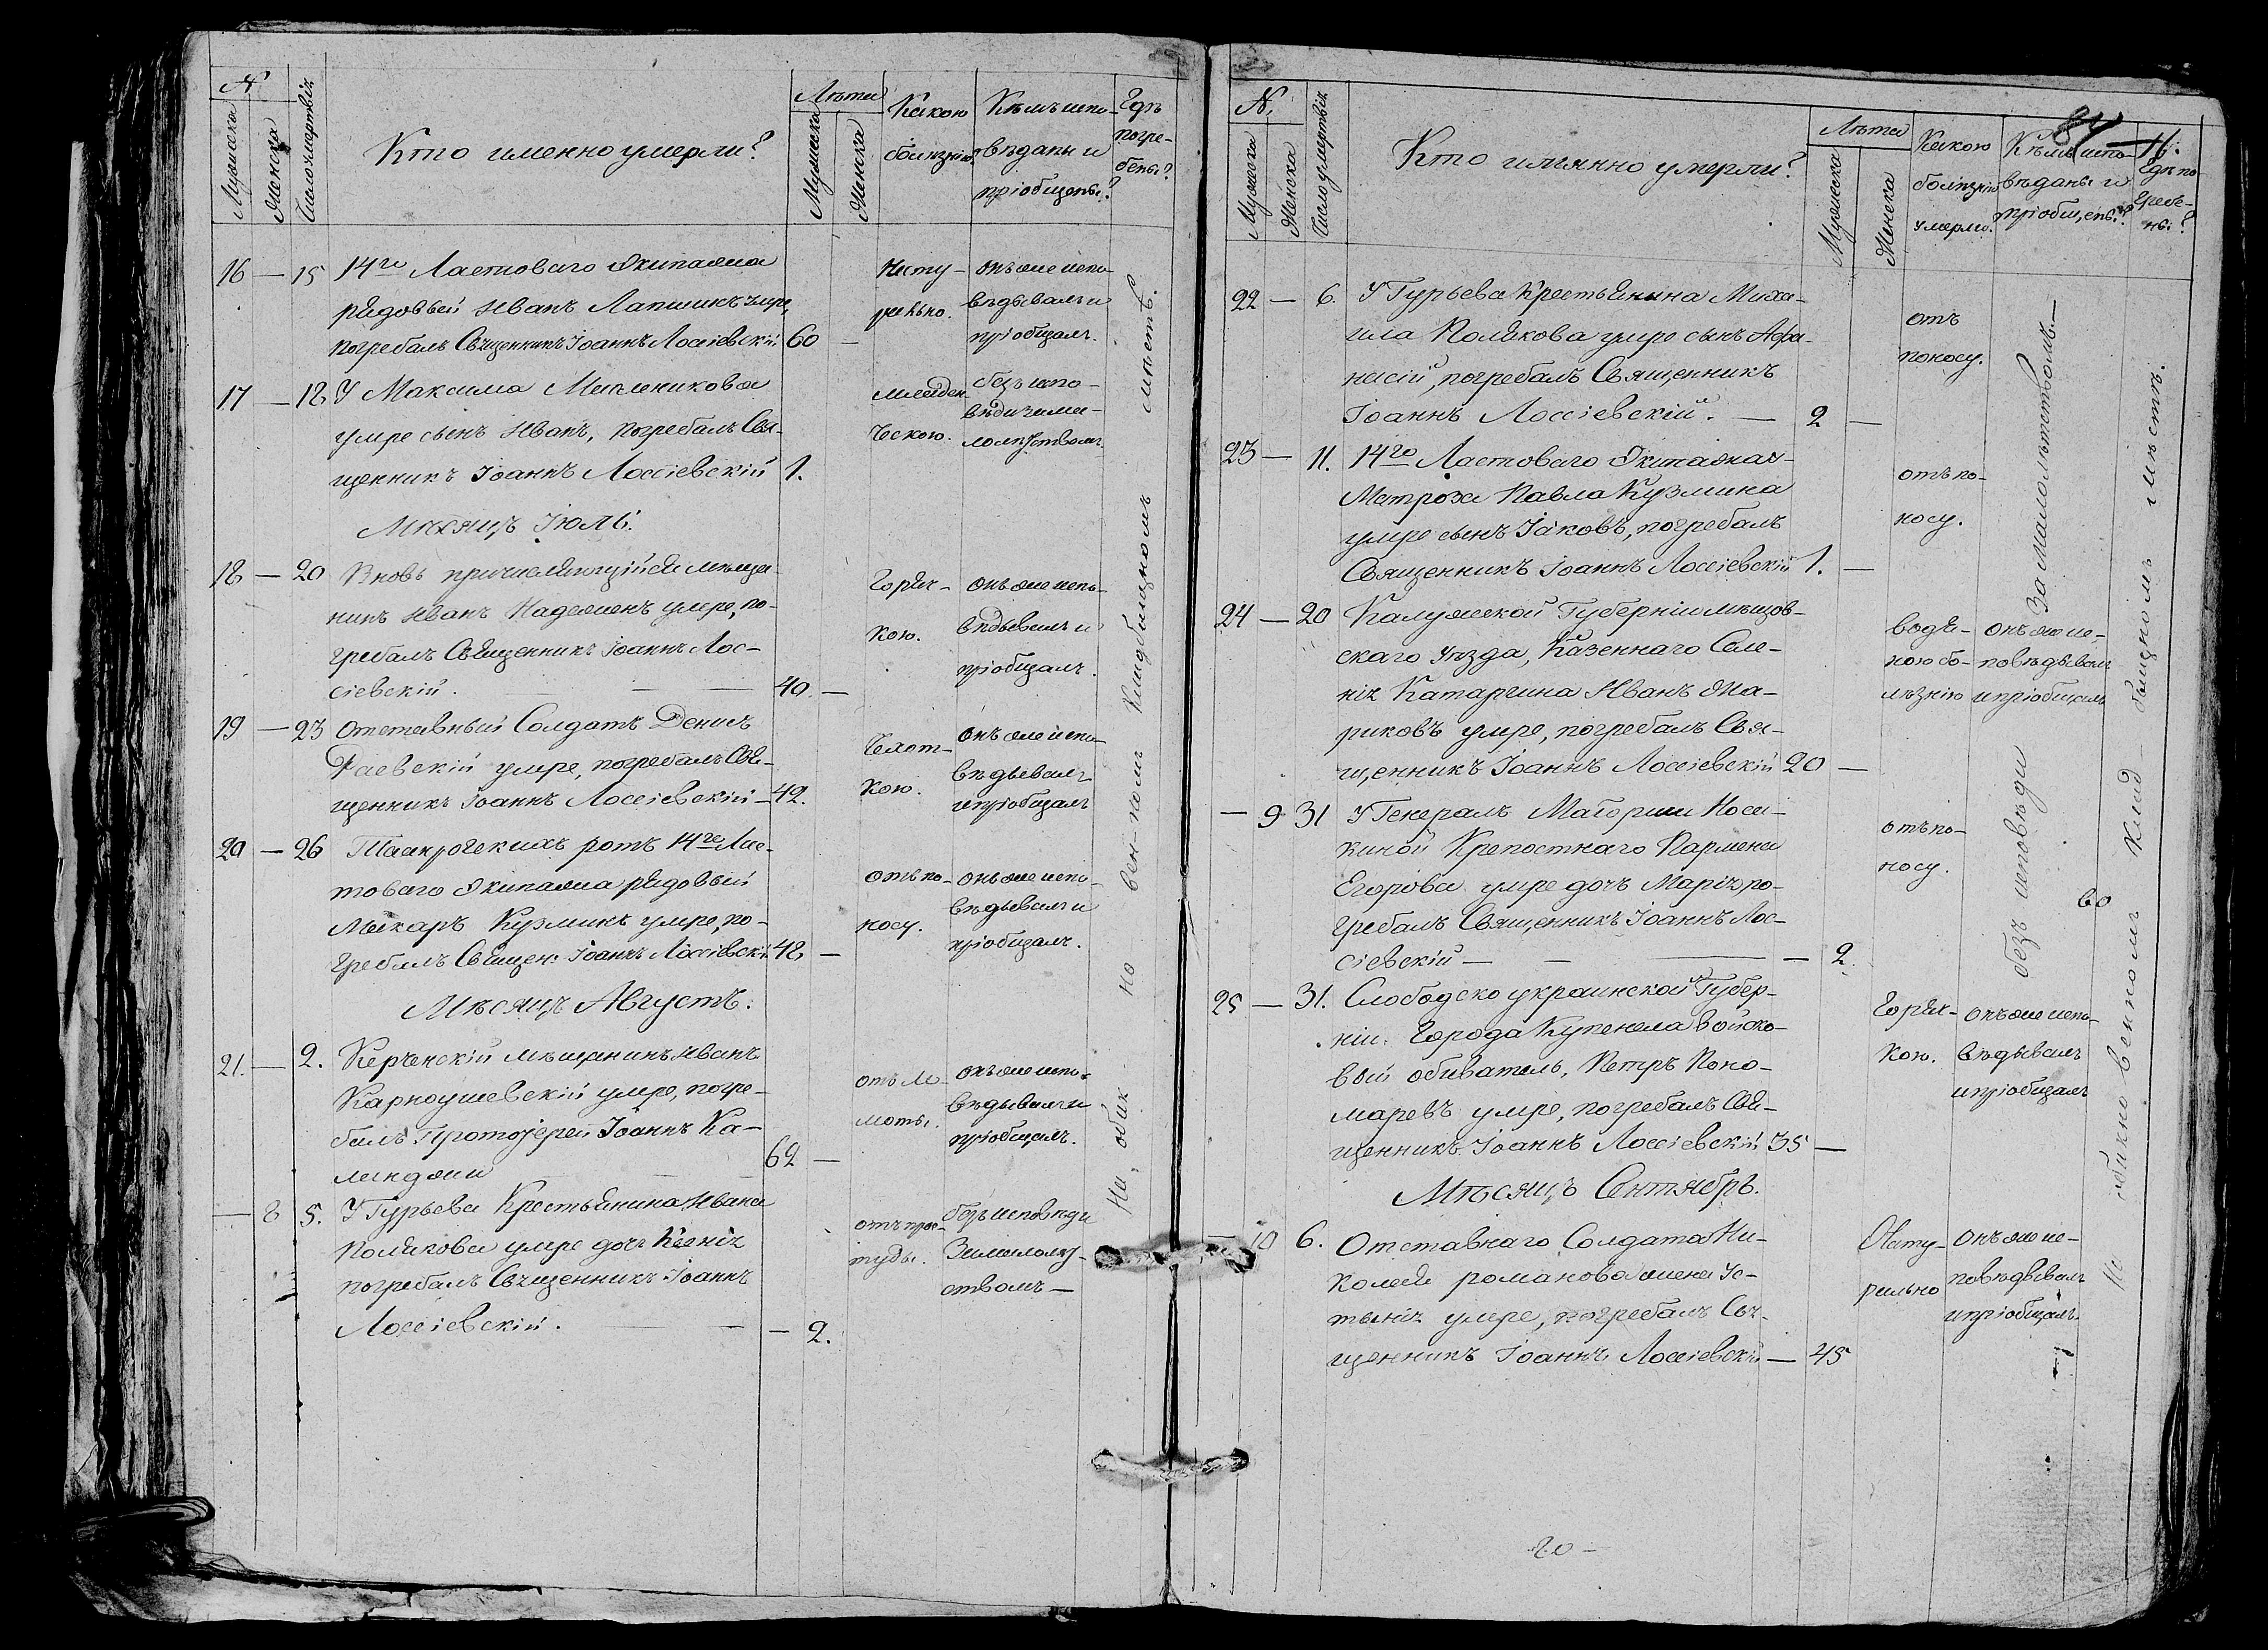 №
Мужеска
Женска
Число умертвія
Кто именно умерли?
Лѣта
Мужеска
Женска
Какою
болѣзнію
Кѣмъ испо-
вѣданы и
пріобщены?
Гдѣ
погре-
бены?
16 — 15 14го Ластоваго Экипажа
рядовый Иванъ Лапшинъ умре,
погребалъ Священникъ Іоаннъ Лоссіевскій 60 —
Нату-
рально.
онъ же испо-
вѣдывалъ и
пріобщалъ.
17 — 18 У Максима Мельникова
умре сынъ Иванъ, погребалъ Свя-
щенникъ Іоаннъ Лоссіевскій 1.
младен-
ческою.
безъ испо-
вѣди за ма-
лолѣтствомъ
Мѣсяцъ Іюль.
18 — 20 Вновь причисляющійся мѣща-
нинъ Иванъ Надеженъ умре, по-
гребалъ Священникъ Іоаннъ Лос-
сіевскій. 40. —
Горяч-
кою.
онъ же испо-
вѣдывалъ и
пріобщалъ.
19 — 23 Отставный Солдатъ Денисъ
Раевскій умре, погребалъ Свя-
щенникъ Іоаннъ Лоссіевскій — 42.
Чахот-
кою.
онъ же испо-
вѣдывалъ
и пріобщалъ
20 — 26 Таганрогскихъ ротъ 14го Лас-
товаго Экипажа рядовый
Макаръ Кузминъ умре, по-
гребалъ Священ: Іоаннъ Лоссіевскій 48 —
отъ по-
носу.
онъ же испо-
вѣдывалъ и
пріобщалъ.
Мѣсяцъ Августъ.
21. — 2. Керченскій мѣщанинъ Иванъ
Карноушевскій умре, погре-
балъ Протоіерей Іоаннъ Ка-
ланджи 62 —
отъ ло-
моты.
онъ же испо-
вѣдывалъ и
пріобщалъ.
— 8 5. У Гурьева Крестьянина Ивана
Полякова умре дочь Ксенія
погребалъ Священникъ Іоаннъ
Лоссіевскій. — 2.
отъ прос-
туды.
безъ исповѣди
За малолѣт-
ствомъ —
На обык-но вен-номъ Кладбищномъ мѣстѣ.
84
16.
№
Мужеска
Женска
Число умертвія
Кто имянно умерли?
Лѣта
Мужеска
Женска
Какою
болѣзнію
умерли.
Кѣмъ испо-
вѣданы и
пріобщены?
Гдѣ по
гребе-
ны?
22 — 6. У Гурьева Крестьянина Миха-
ила Полякова умре сынъ Афа-
насій, погребалъ Священникъ
Іоаннъ Лоссіевскій. — 2 —
отъ
поносу.
23 — 11. 14го Ластоваго Экипажа
Матроза Павла Кузмина
умре сынъ Іаковъ, погребалъ
Священникъ Іоаннъ Лоссіевскій 1. —
отъ по-
носу.
24 — 20 Калужской Губерніи мѣщов-
скаго Уѣзда, Казеннаго Селе-
нія Катаргина Иванъ
умре, погребалъ Свя-
щенникъ Іоаннъ Лоссіевскій 20 —
водя-
ною бо-
лѣзнію
онъ же ис-
повѣдывалъ
и пріобщалъ
— 9 31 У Генералъ Маіорши
Крепостнаго Пармена
Егорова умре дочь Марія, по-
гребалъ Священникъ Іоаннъ Лос-
сіевскій — — 2.
отъ по-
носу.
безъ исповѣди За малолѣтствомъ. —
25 — 31. Слободско украинской Губер-
ніи Города Купенска войско-
вый обиватель, Петръ Поно-
маревъ умре, погребалъ Свя-
щенникъ Іоаннъ Лоссіевскій 35 —
Горяч-
кою.
онъ же испо-
вѣдывалъ
и пріобщалъ
Мѣсяцъ Сентябрь.
— 10 6. Отставнаго Солдата Ни-
колая романова жена Ус-
тинія умре, погребалъ Свя-
щенникъ Іоаннъ Лоссіевскій — 45
Нату-
рально
онъ же ис-
повѣдывалъ
и пріобщалъ.
На обыкновенномъ Клад-бищномъ мѣстѣ.